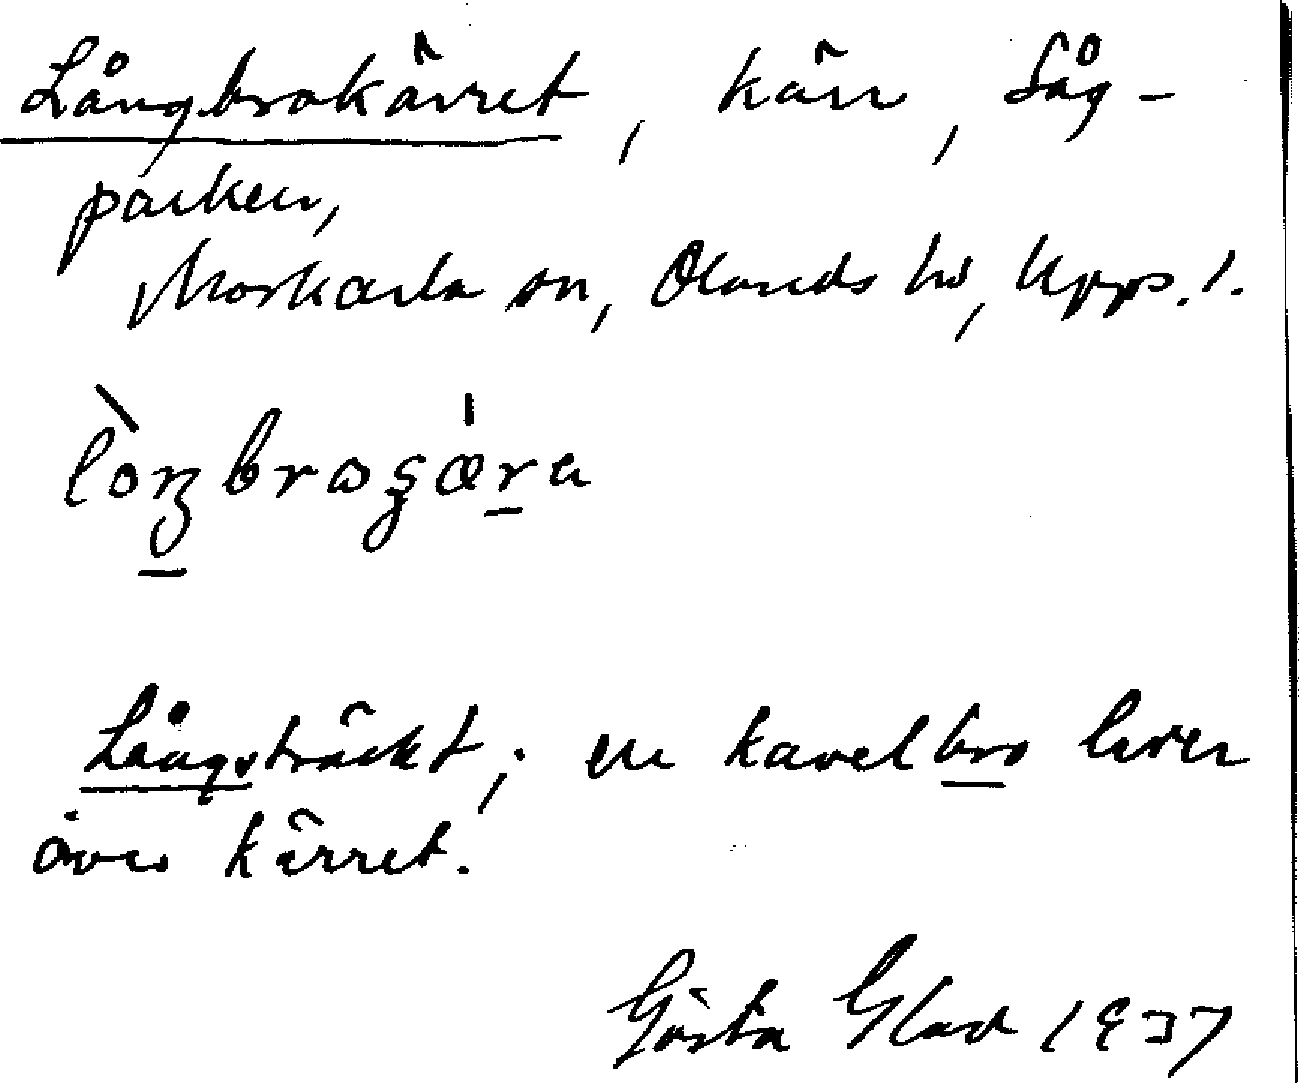 Långbrokärret, kärr, Såg-
parken,
Morkarla sn, Olands hd, Upps. l.
Långsträckt; en kavelbro leder
över kärret.
Gösta Glad 1937